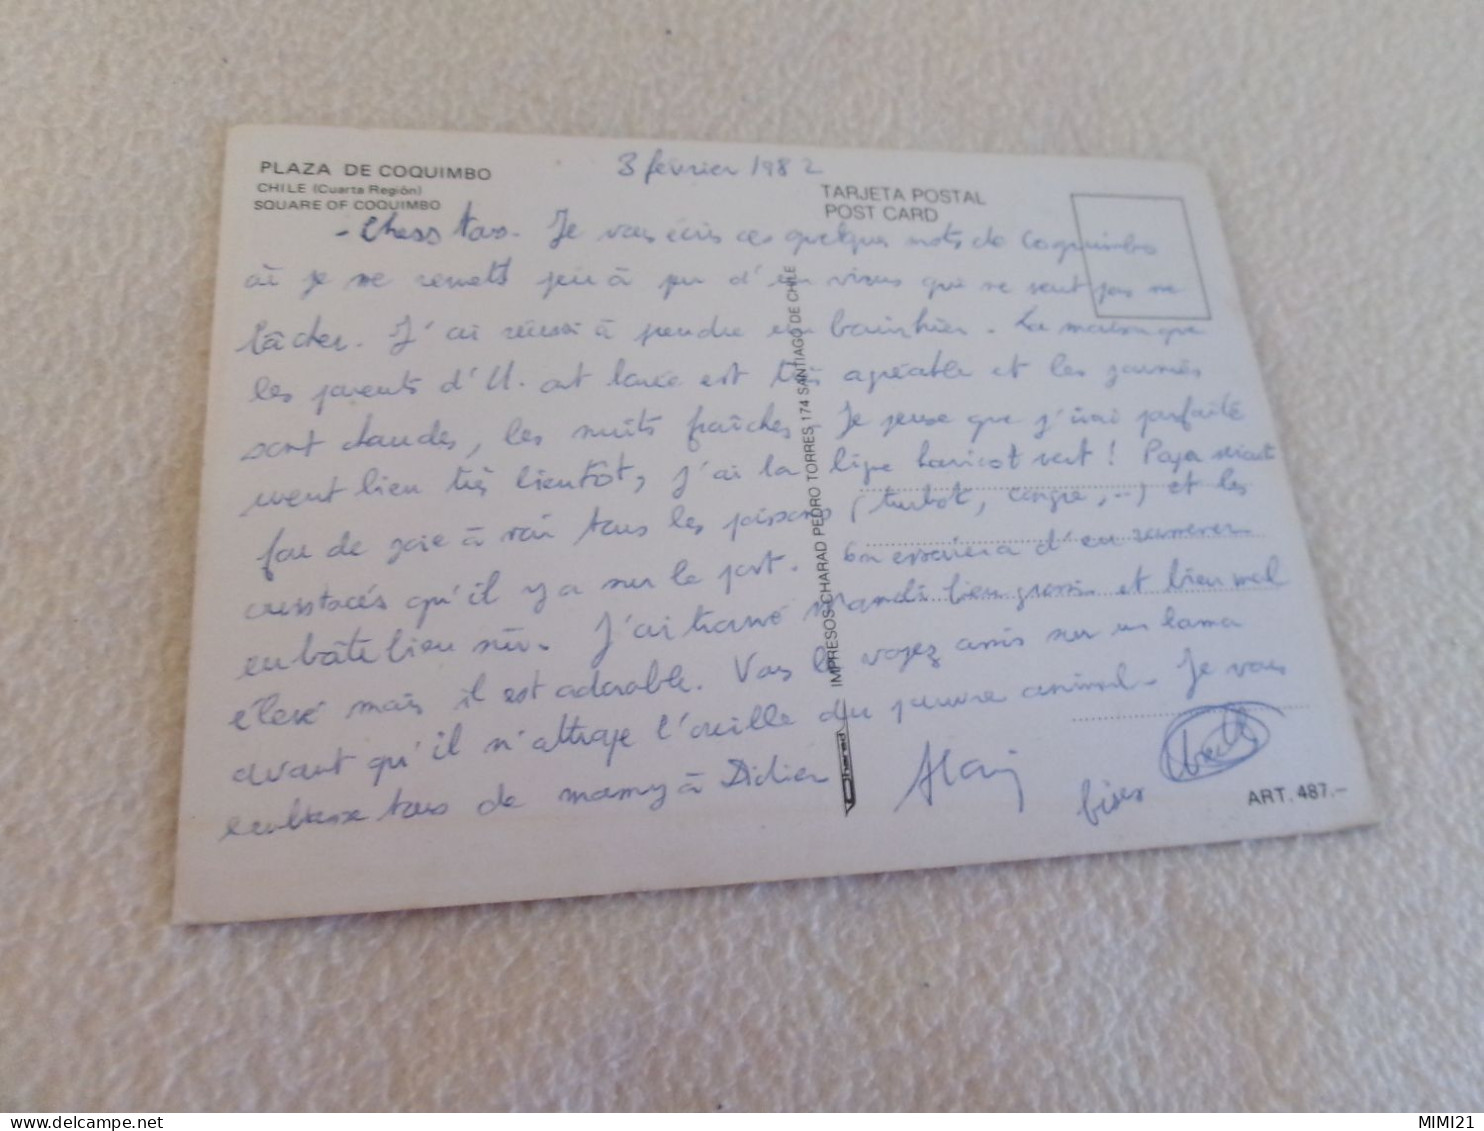 PLAZA DE COQUIMBO
CHILE (Cuarta Región)
SQUARE OF COQUIMBO
3 février 1982
TARJETA POSTAL
POST CARD
- Chers tous. Je vous écris ces quelques mots de Coquimbo
où je me remets peu à peu d'un virus qui ne veut pas me
lâcher. J'ai réussi à prendre un bain hier. La maison que
les parents d'U. ont louée est très agréable et les journées
sont chaudes, les nuits fraîches. Je pense que j'irai parfaite
ment bien très bientôt, j'ai la ligne haricot vert ! Papa serait
fou de joie à voir tous les poissons (turbot, congre, ..) et les
crustacés qu'il y a sur le port. On essaiera d'en ramener
en boîte bien sûr. J'ai trouvé bien grossi et bien mal
élevé mais il est adorable. Vous le voyez assis sur un lama
avant qu'il n'attrape l'oreille du pauvre animal. Je vous
embrasse tous de mamy à Didier
Alain
bises
IMPRESOS CHARAD PEDRO TORRES 174 SANTIAGO DE CHILE
Charad
ART. 487.-
MIMI21